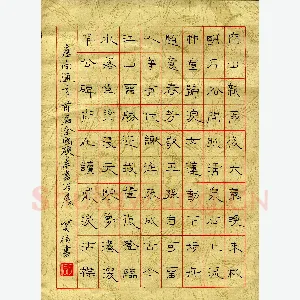 空山新雨後天氣晚來秋
明月松間照清泉石上流
竹喧歸浣女蓮動下漁舟
隨意春芳歇王孫自可留
人事有代謝往來成古今
江山留勝跡我輩復登臨
水落魚梁淺天寒夢澤深
羊公碑尚在讀罷淚沾襟